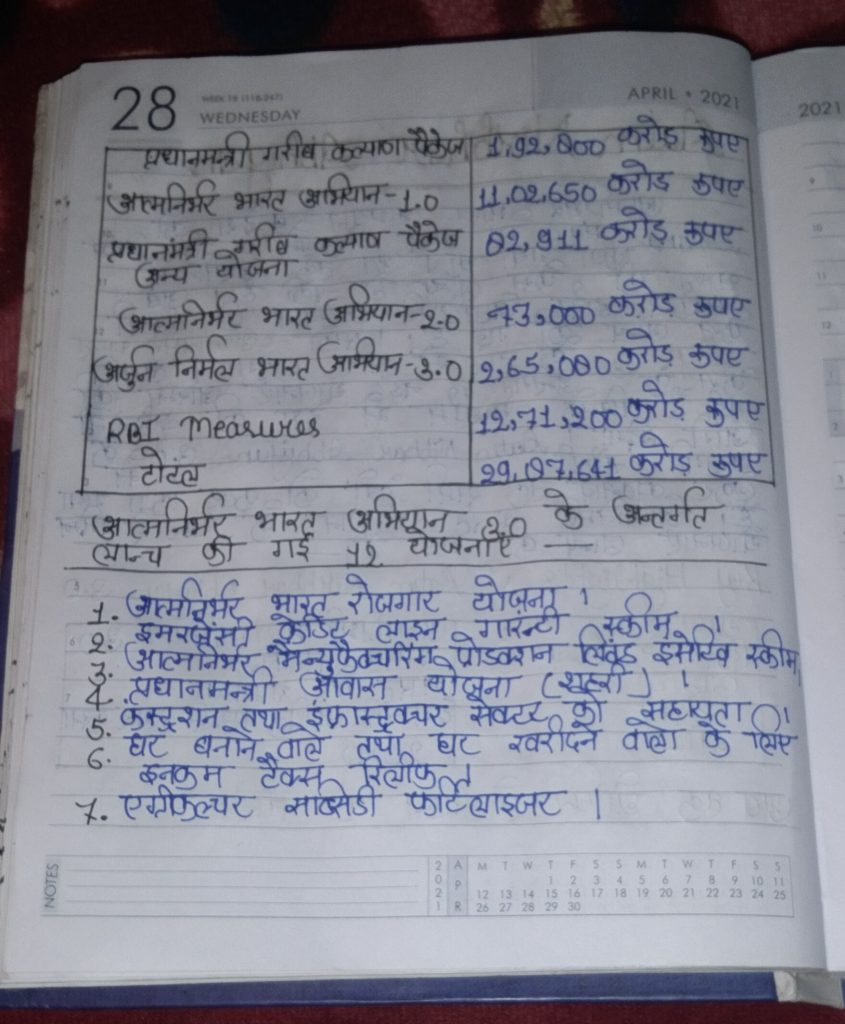 28 WEEK 18 (118-247) WEDNESDAY APRIL • 2021
2021
प्रधानमन्त्री गरीब कल्याण पैकेज 1,92,800 करोड़ रुपए
आत्मनिर्भर भारत अभियान-1.0 11,02,650 करोड़ रुपए
प्रधानमंत्री गरीब कल्याण पैकेज 82,911 करोड़ रुपए
अन्य योजना
आत्मनिर्भर भारत अभियान-2.0 73,000 करोड़ रुपए
अर्जुन निर्मल भारत अभियान-3.0 2,65,080 करोड़ रुपए
RBI Measures 12,71,200 करोड़ रुपए
टोटल 29,87,641 करोड़ रुपए
आत्मनिर्भर भारत अभियान 3.0 के अन्तर्गत
लान्च की गई 12 योजनाएँ —
1. आत्मनिर्भर भारत रोजगार योजना ।
2. इमरजेंसी क्रेडिट लाइन गारन्टी स्कीम ।
3. आत्मनिर्भर मैन्युफैक्चरिंग प्रोडक्शन स्कीम,
4. प्रधानमन्त्री आवास योजना (शहरी) ।
5. कंस्ट्रशन तथा इंफ्रास्ट्रक्चर सेक्टर को सहायता ।
6. घर बनाने वाले तथा घर खरीदने वालो के लिए
इनकम टैक्स रिलीफ ।
7. एग्रीकल्चर सब्सिडी फर्टिलाइजर ।
NOTES
2021 APR
M T W T F S S M T W T F S S
1 2 3 4 5 6 7 8 9 10 11
12 13 14 15 16 17 18 19 20 21 22 23 24 25
26 27 28 29 30